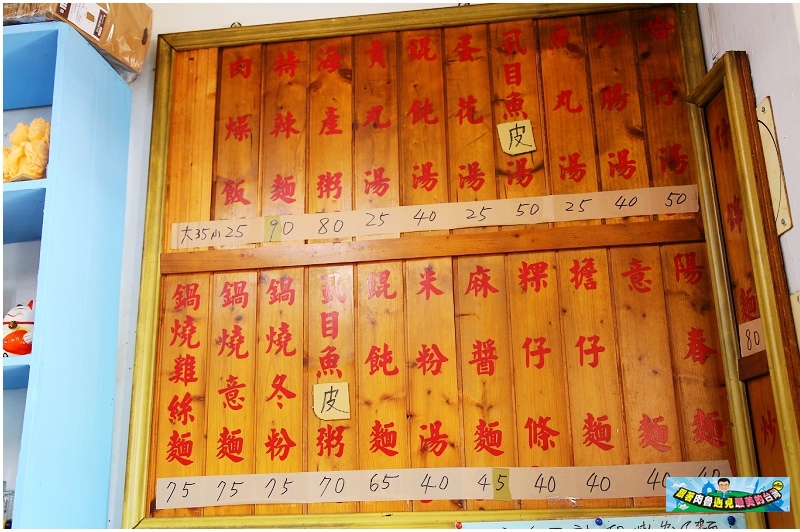 蛤仔湯 50
粉腸湯 40
魚丸湯 25
虱目魚皮湯 50
蛋花湯 25
餛飩湯 40
貢丸湯 25
海產粥 80
特辣麵 90
肉燥飯 大35小25
陽春麵 40
意麵 40
擔仔麵 40
粿仔條 40
麻醬麵 45
米粉湯 40
餛飩麵 65
虱目魚皮粥 70
鍋燒冬粉 75
鍋燒意麵 75
鍋燒雞絲麵 75
麵 80
炒
跟著肉魯遇見最美的台灣